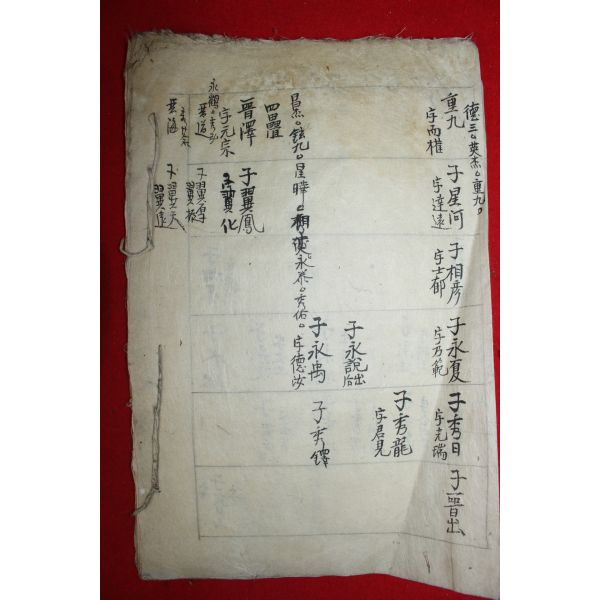 德三。英杰。重九。
重九
字而權
子星河
字達遠
子相彦
字士郁
子永夏
字乃範
子秀日
字克瑞
子晋出
子秀龍
字君見
子永說出后
子永禹
子秀鐸
昌杰。鉉九。星曄。相
永泰。秀佑。字德汝
四疊
晉澤
字元宗
子翼鳳
子翼化
永鶴
晋道
子翼厚
翼
晋海
子翼天
翼遠